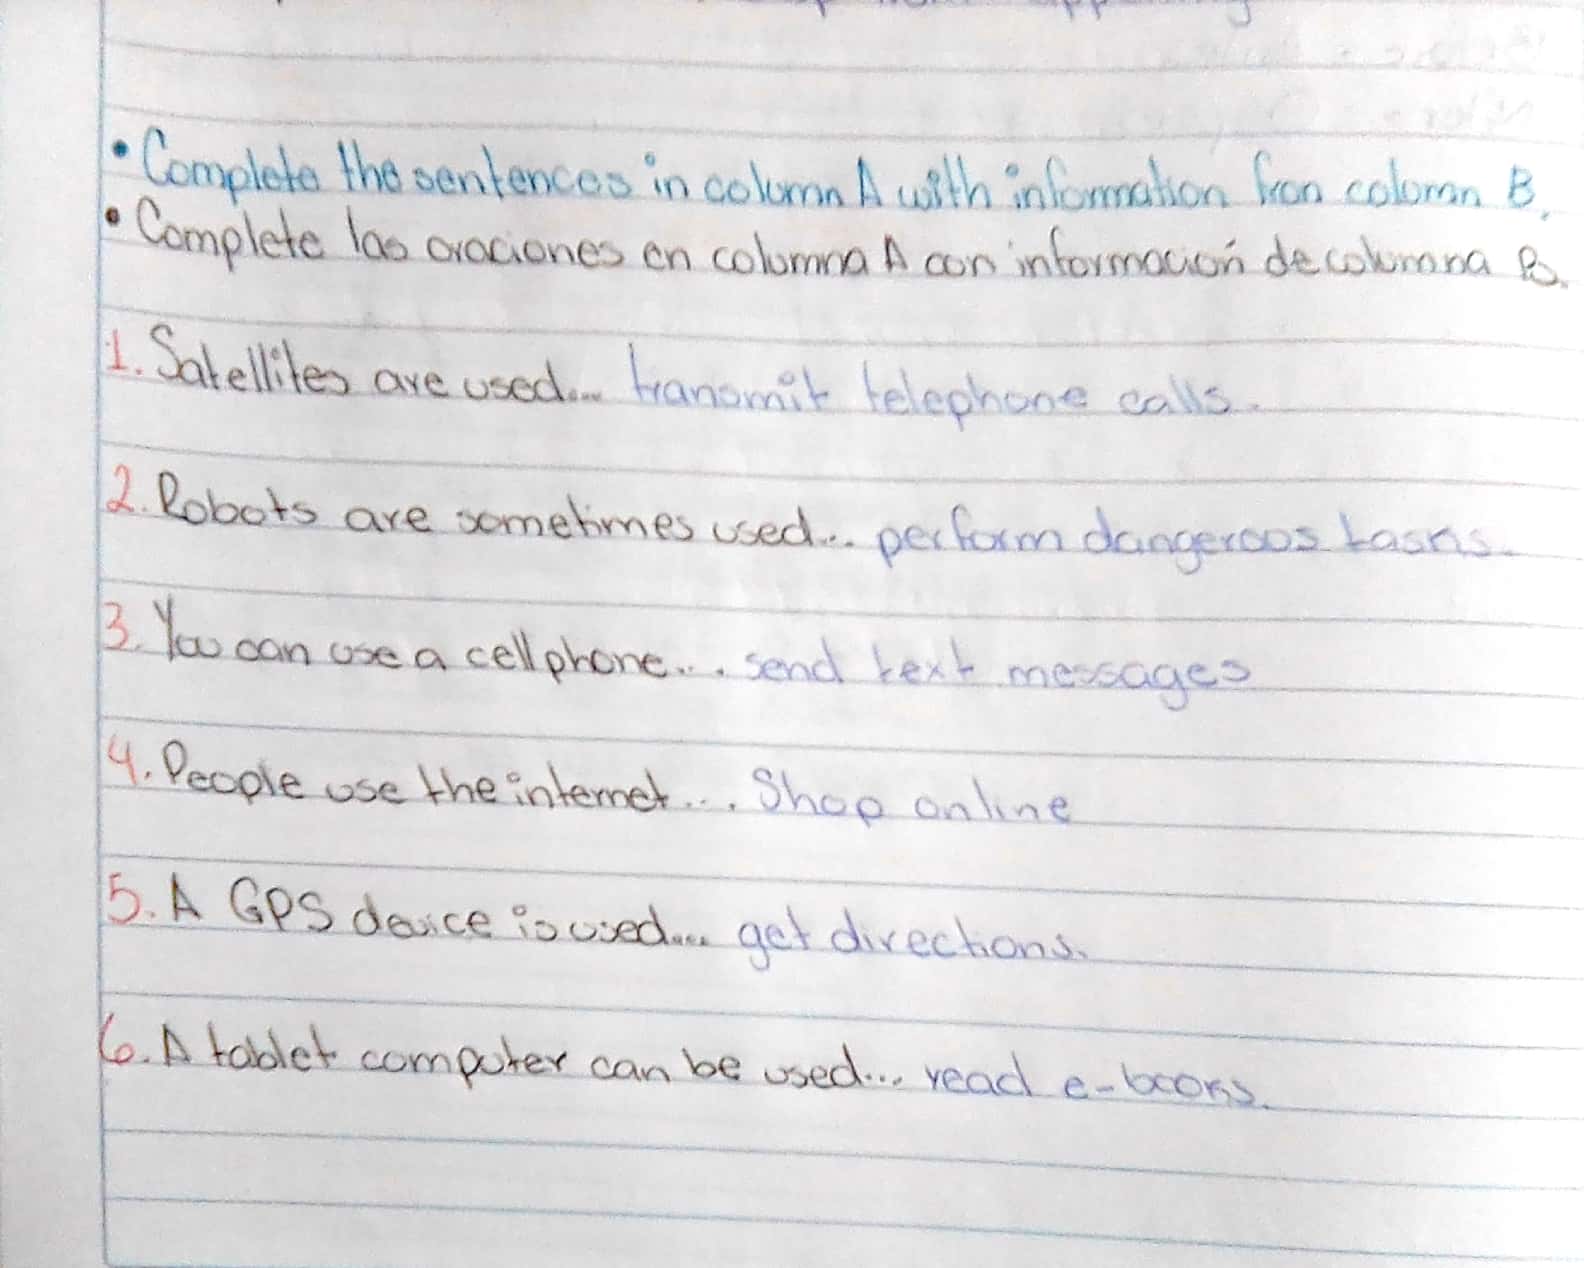 • Complete the sentences in column A with information fron column B.
• Complete las oraciones en columna A con información de columna B.
1. Satellites are used... transmit telephone calls.
2. Robots are sometimes used... perform dangerous tasks.
3. You can use a cell phone... send text messages
4. People use the internet... Shop online
5. A GPS device is used... get directions.
6. A tablet computer can be used... read e-books.